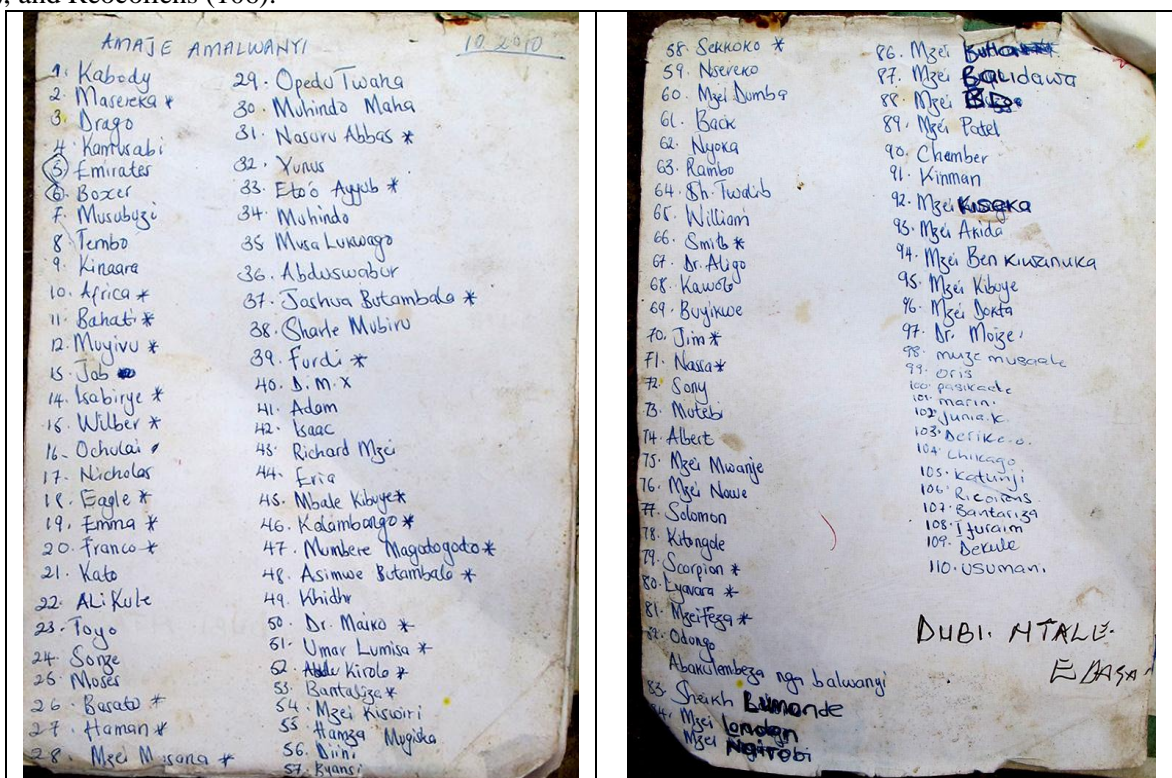 and Recocilens (106).
AMAJE AMALWANYI 10.2010
1. Kabody
2. Masereka *
3. Drago
4. Kantusabi
5 Emirates
6. Boxer
7. Musubuzi
8 Tembo
9. Kinaara
10. Africa *
11. Bahati *
12. Muyivu *
13. Job
14. Isabirye *
15. Wilber *
16. Ochulai
17. Nicholas
18. Eagle *
19. Emma *
20. Franco *
21. Kato
22. ALi Kule
23. Toyo
24. Songe
25 Moses
26. Barato *
27. Haman *
28. Mzei Musana *
29. Opedu Twaha
30. Muhindo Maha
31. Nasuru Abbas *
32. Yunus
33. Eto'o Ayyub *
34. Muhindo
35 Musa Lukwago
36. Abduswabur
37. Jashua Butambala *
38. Sharle Mubiru
39. Furdi *
40. D.M.X
41. Adam
42. Isaac
43. Richard Mzei
44. Eria
45. Mbale Kibuye *
46. Kalambango *
47. Mumbere Magatogoto *
48. Asimwe Butambala *
49. Khidhr
50. Dr. Maiko *
51. Umar Lumisa *
52. Kirolo *
53. Bantaliza *
54. Mzei Kiswiri
55. Hamza Mugisha
56. Diini
57. Byansi
58. Sekkoko *
59. Nsereko
60. Mzei Dumba
61. Back
62. Nyoka
63. Rambo
64. Sh. Twalib
65. William
66. Smith *
67. Dr. Aligo
68. Kawobi
69. Buyikwe
70. Jim *
71. Nassa *
72. Sony
73. Mutebi
74. Albert
75. Mzei Mwanje
76. Mzei Nowe
77. Solomon
78. Kitongole
79. Scorpion *
80. Lyavara *
81. Mzei Feza *
82. Odongo
Abakulembeza nga balwanyi
83. Sheikh Lumonde
84. Mzei london
Mzei Ngirobi
86. Mzei
87. Mzei BALidawa
88. Mzei
89. Mzei Patel
90. Chamber
91. Kinman
92. Mzei Kiseka
93. Mzei Akida
94. Mzei Ben Kiwanuka
95. Mzei Kibuye
96. Mzei Dokta
97. Dr. Moize
98. muze musaale
99. oris
100. pasikaale
101. marin.
102. Junia.K.
103. Derike.o.
104. Chikago
105. Katunji
106. Ricoilens
107. Bantariza
108. Ifuraim
109. Dekule
110. Usumani.
DUBI. NTALE.
EBAGA